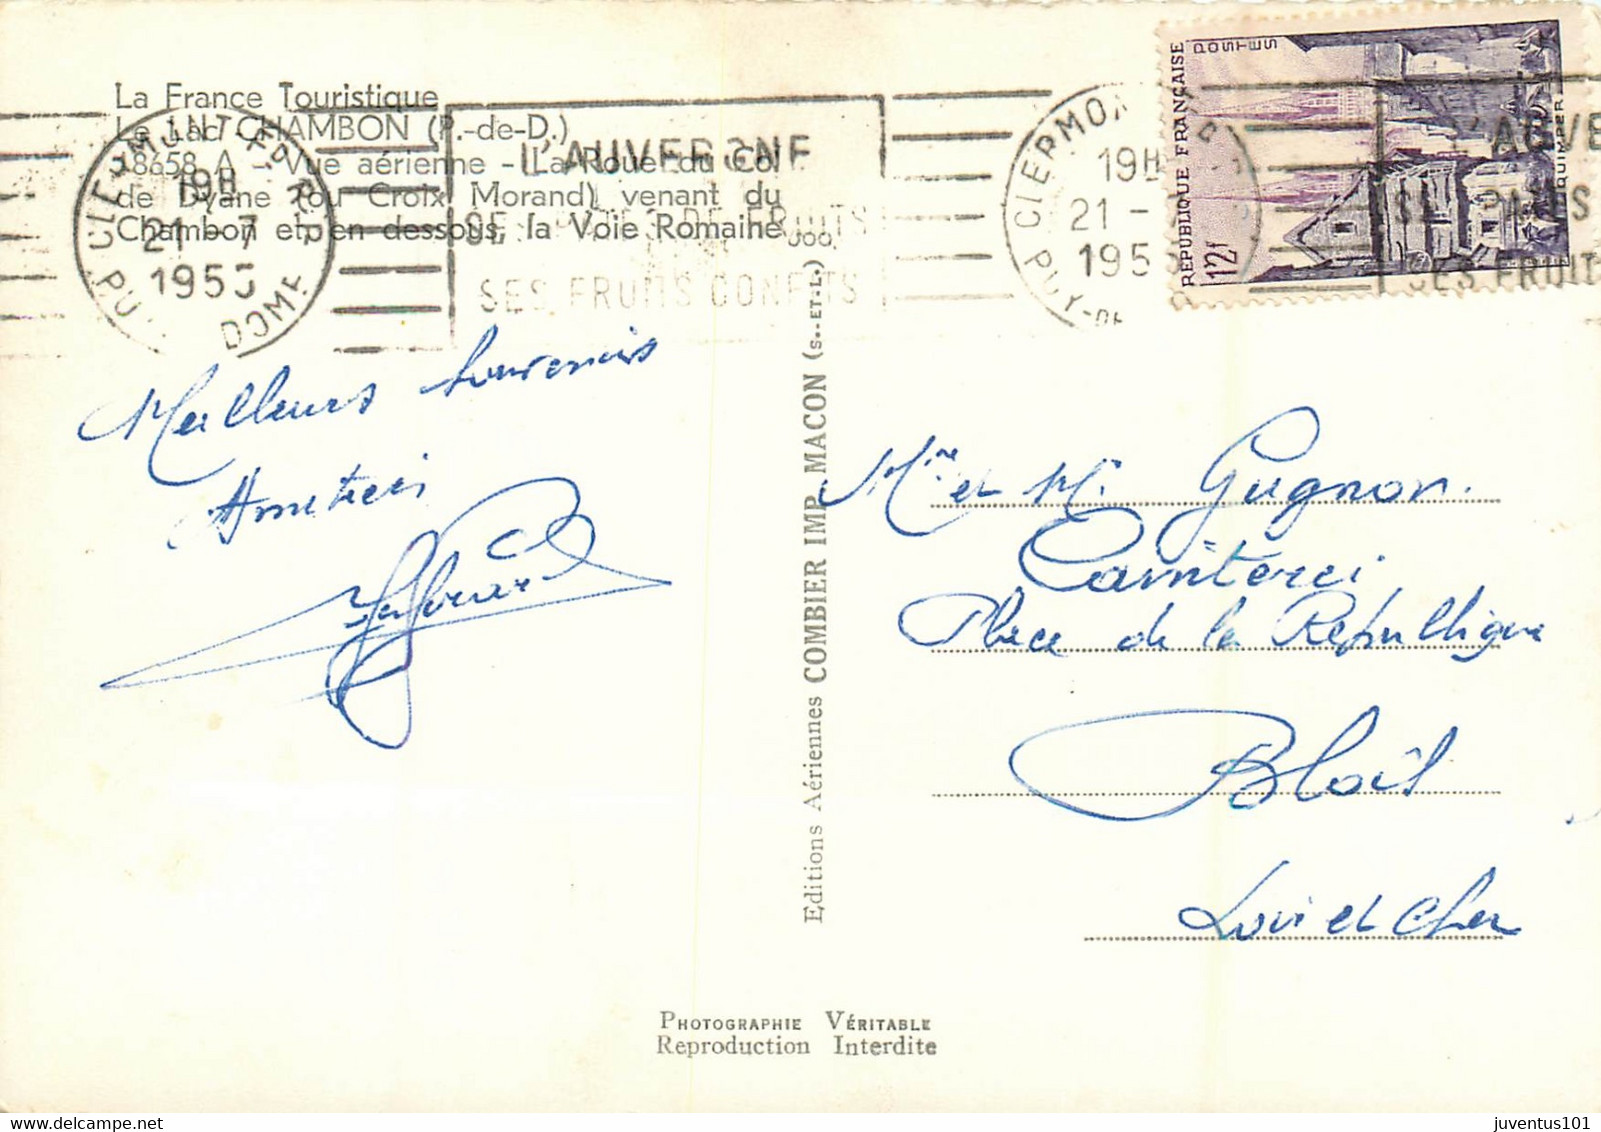 La France Touristique
Le Lac CHAMBON (P.-de-D.)
18658 A - Vue aérienne - La Route du Col
de Dyane (ou Croix Morand) venant du
Chambon et en dessous, la Voie Romaine
CLERMONT-FD R.P.
19H
21 - 7
1955
PUY-DE-DOME
L'AUVERGNE
SES FRUITS CONFITS
CLERMON
19H
21 -
195
PUY-DE
REPUBLIQUE FRANÇAISE
POSTES
12f
QUIMPER
L'AUVE
SES FRUIT
Meilleurs souvenirs
Amitiés
Mme et Mr. Gugnon.
Place de la République
Blois
Loir et Cher
Editions Aériennes COMBIER IMP. MACON (S.-ET-L.)
PHOTOGRAPHIE VÉRITABLE
Reproduction Interdite
juventus101